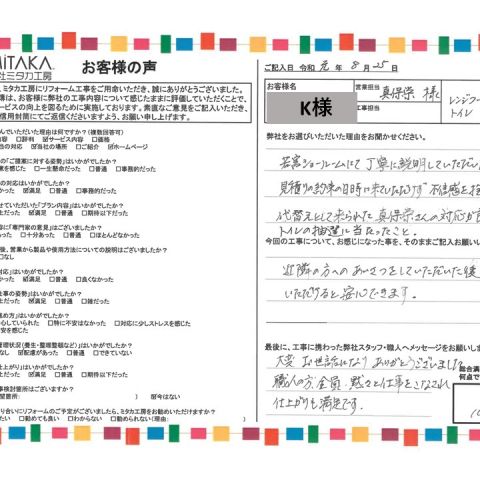 MiTAKA
社ミタカ工房
お客様の声
ミタカ工房にリフォーム工事をご用命いただき、誠にありがとうございました。
簿は、お客様に弊社の工事内容について感じたままに評価していただくことで、
ービスの向上を図るために実施しております。素直なご意見をご記入いただき、
信用封筒にてご返信くださいますよう、お願い申し上げます。
んでいただいた理由は何ですか?（複数回答可）
内容 □評判 ☑サービス内容 □価格
当の対応 ☑当社の場所 □ご紹介 ☑ホームページ
の「ご提案に対する姿勢」はいかがでしたか?
を感じた □一生懸命だった □普通 □事務的だった
の対応はいかがでしたか?
だった ☑満足 □普通 □事務的だった
せていただいた「プラン内容」はいかがでしたか?
だった ☑満足 □普通 □期待以下だった
に「専門家の意見」はございましたか?
あった □十分あった □普通 □ほとんどなかった
後、営業から製品や使用方法についての説明はございましたか?
□なし
対応」はいかがでしたか?
だった ☑満足 □普通 □良くなかった
仕事の姿勢」はいかがでしたか?
だった ☑満足 □普通 □雑だった
進め方」はいかがでしたか?
心していられた □特に不安はなかった □対応に少しストレスを感じた
安を感じた
管理状況（養生・整理整頓など）」はいかがでしたか?
なし ☑配慮があった □普通 □できていない
だった ☑満足 □普通 □期待以下だった
事検討箇所はございますか?
箇所: ）☑今はない
り合いにリフォームのご予定がございましたら、ミタカ工房をお勧めいただけますか?
□勧めても良い □わからない □勧められない（理由:
ご記入日 令和 元 年 8 月 25 日
お客様名
K様
営業担当
真保栄 様
工事担当
レンジフー
トイレ
弊社をお選びいただいた理由をお聞かせください。
ショールームにて丁寧に説明していただい
見積りの約束の日時に来ていただけず 不信感を
代替えとして来られた真保栄さんの対応が
トイレの抽選に当たったこと。
今回の工事について、お感じになった事を、そのままご記入お願い
近隣の方へのあいさつをしていただいた後
いただけると 安心できます。
最後に、工事に携わった弊社スタッフ・職人へメッセージをお願いしま
大変 お世話になり ありがとうございました
職人の方、全員、黙々と仕事をこなされ
仕上がりも満足です。
総合満
何点で